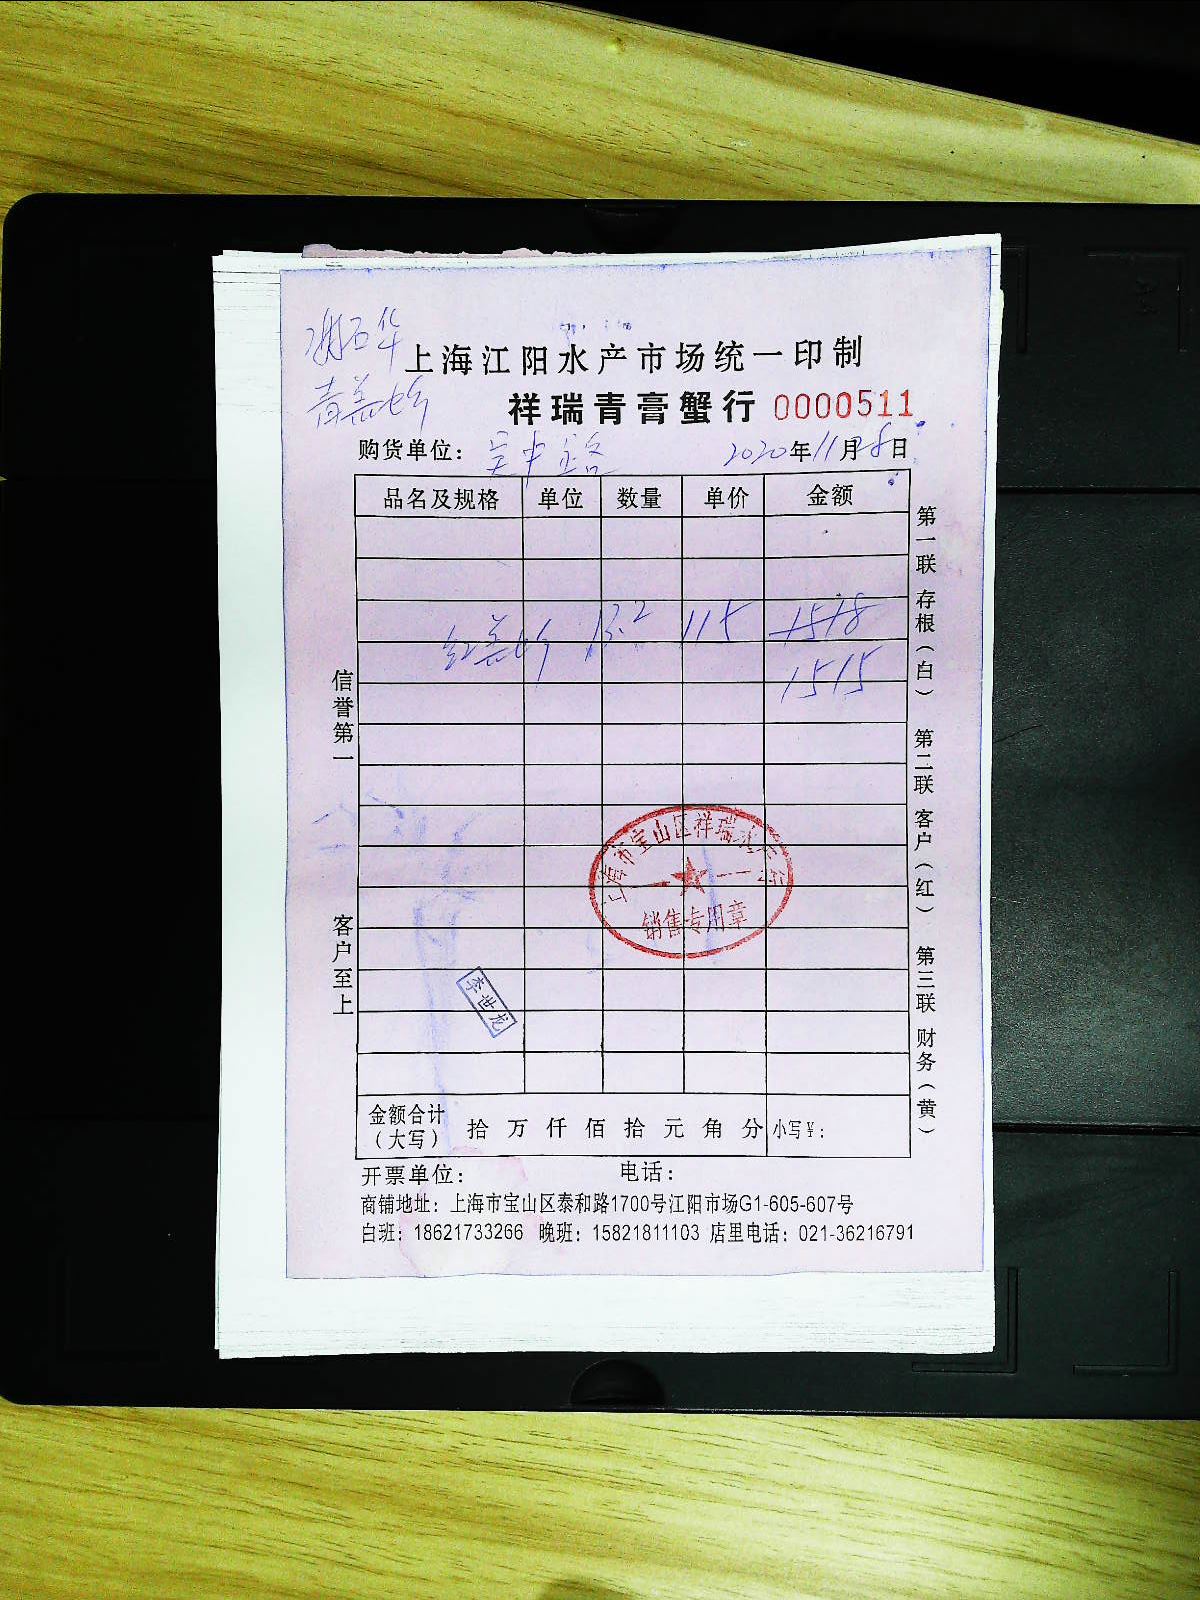 上海江阳水产市场统一印制
祥瑞青膏蟹行 0000511
购货单位：吴中路 2020年11月28日
品名及规格 单位 数量 单价 金额
13.2 115 1518
1515
信誉第一
客户至上
第一联 存根（白）
第二联 客户（红）
第三联 财务（黄）
上海市宝山区祥瑞
销售专用章
李世龙
金额合计（大写） 拾 万 仟 佰 拾 元 角 分 小写￥：
开票单位： 电话：
商铺地址：上海市宝山区泰和路1700号江阳市场G1-605-607号
白班：18621733266 晚班：15821811103 店里电话：021-36216791